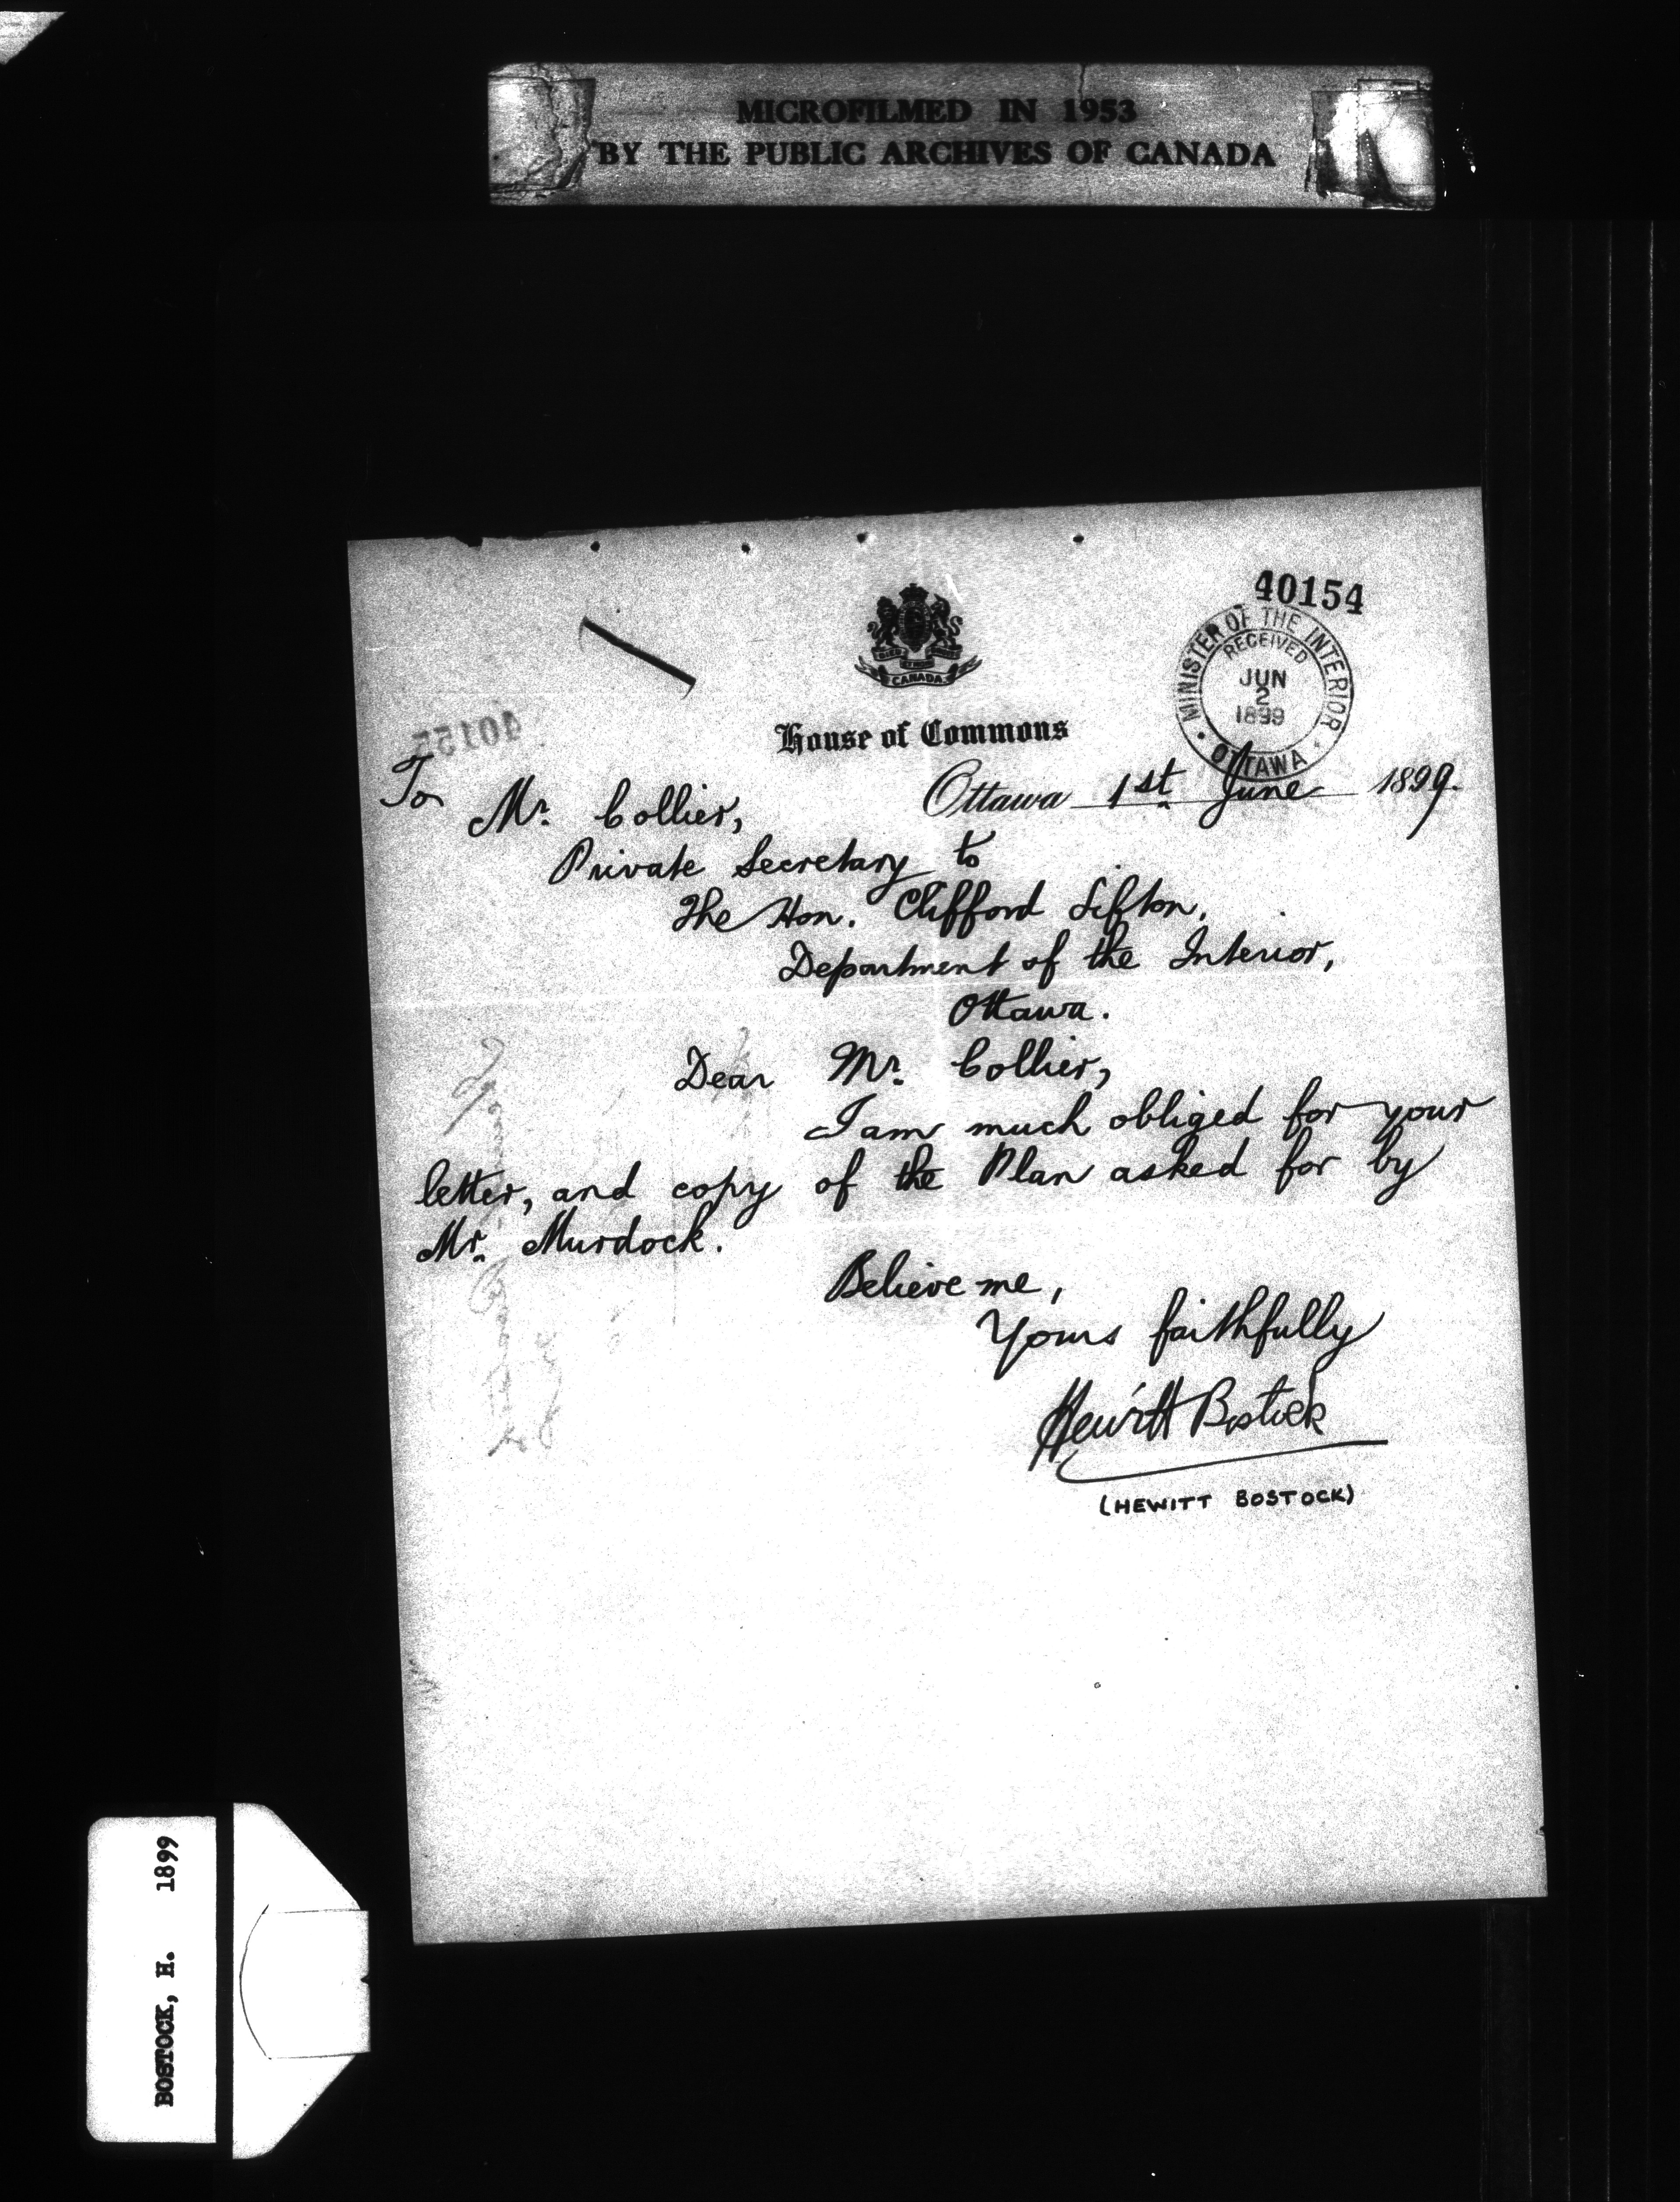 MICROFILMED IN 1953
BY THE PUBLIC ARCHIVES OF CANADA
40154
CANADA
MINISTER OF THE INTERIOR
RECEIVED
JUN
2
1899
OTTAWA
House of Commons
40155
Ottawa 1st June 1899.
To
Mr. Collier,
Private Secretary to
The Hon. Clifford Sifton,
Department of the Interior,
Ottawa.
Dear Mr. Collier,
I am much obliged for your
letter, and copy of the Plan asked for by
Mr. Murdock.
Believe me,
Yours faithfully
Hewitt Bostock
(HEWITT BOSTOCK)
BOSTOCK, H. 1899